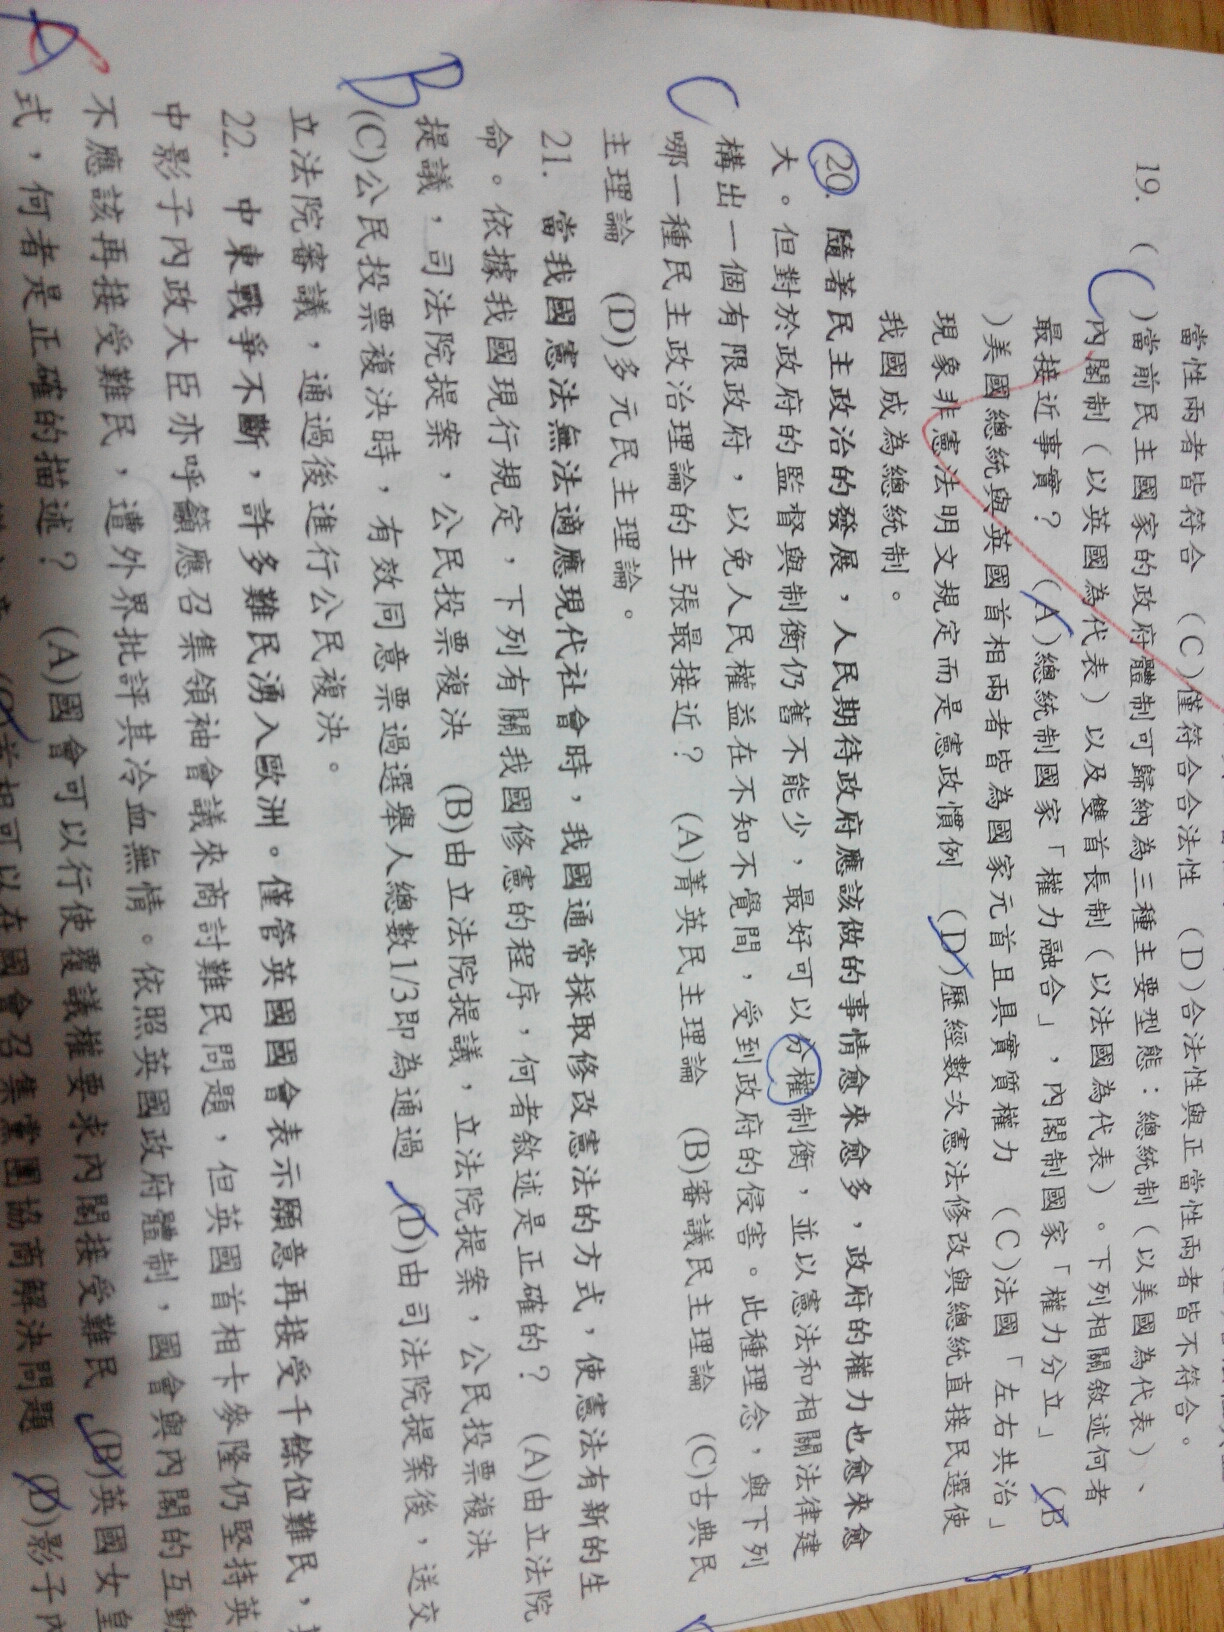 當性兩者皆符合 (C)僅符合合法性 (D)合法性與正當性兩者皆不符合。
19. ( C )當前民主國家的政府體制可歸納為三種主要型態：總統制（以美國為代表）、
內閣制（以英國為代表）以及雙首長制（以法國為代表）。下列相關敘述何者
最接近事實？ (A)總統制國家「權力融合」，內閣制國家「權力分立」 (B
)美國總統與英國首相兩者皆為國家元首且具實質權力 (C)法國「左右共治」
現象非憲法明文規定而是憲政慣例 (D)歷經數次憲法修改與總統直接民選使
我國成為總統制。
20. 隨著民主政治的發展，人民期待政府應該做的事情愈來愈多，政府的權力也愈來愈
大。但對於政府的監督與制衡仍舊不能少，最好可以分權制衡，並以憲法和相關法律建
構出一個有限政府，以免人民權益在不知不覺間，受到政府的侵害。此種理念，與下列
C
哪一種民主政治理論的主張最接近？ (A)菁英民主理論 (B)審議民主理論 (C)古典民
主理論 (D)多元民主理論。
21. 當我國憲法無法適應現代社會時，我國通常採取修改憲法的方式，使憲法有新的生
命。依據我國現行規定，下列有關我國修憲的程序，何者敘述是正確的？ (A)由立法院
提議，司法院提案，公民投票複決 (B)由立法院提議，立法院提案，公民投票複決
B
(C)公民投票複決時，有效同意票過選舉人總數1/3即為通過 (D)由司法院提案後，送交
立法院審議，通過後進行公民複決。
22. 中東戰爭不斷，許多難民湧入歐洲。僅管英國國會表示願意再接受千餘位難民，
中影子內政大臣亦呼籲應召集領袖會議來商討難民問題，但英國首相卡麥隆仍堅持英
不應該再接受難民，遭外界批評其冷血無情。依照英國政府體制，國會與內閣的互動
A
式，何者是正確的描述？ (A)國會可以行使覆議權要求內閣接受難民 (B)英國女皇
首相可以在國會召集黨團協商解決問題 (D)影子內